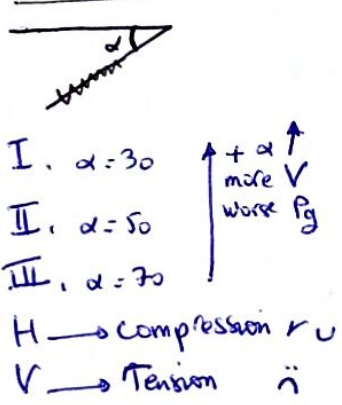 α
I. α = 30
II. α = 50
III. α = 70
+ α ↑
more V
worse Pg
H → Compression
V → Tension